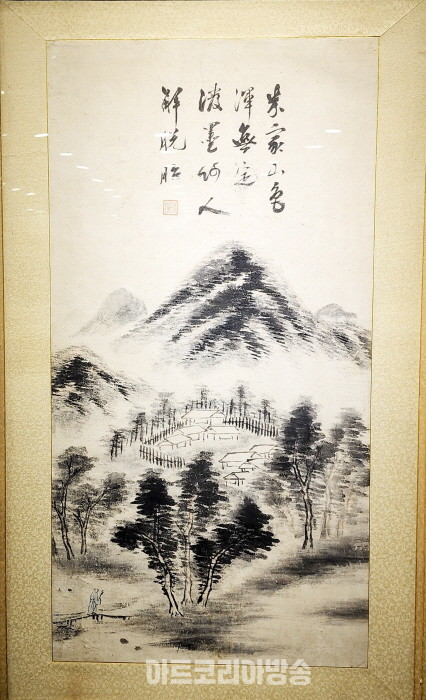 米家山色
渾無定
潑墨何人
解脫胎
아트코리아방송